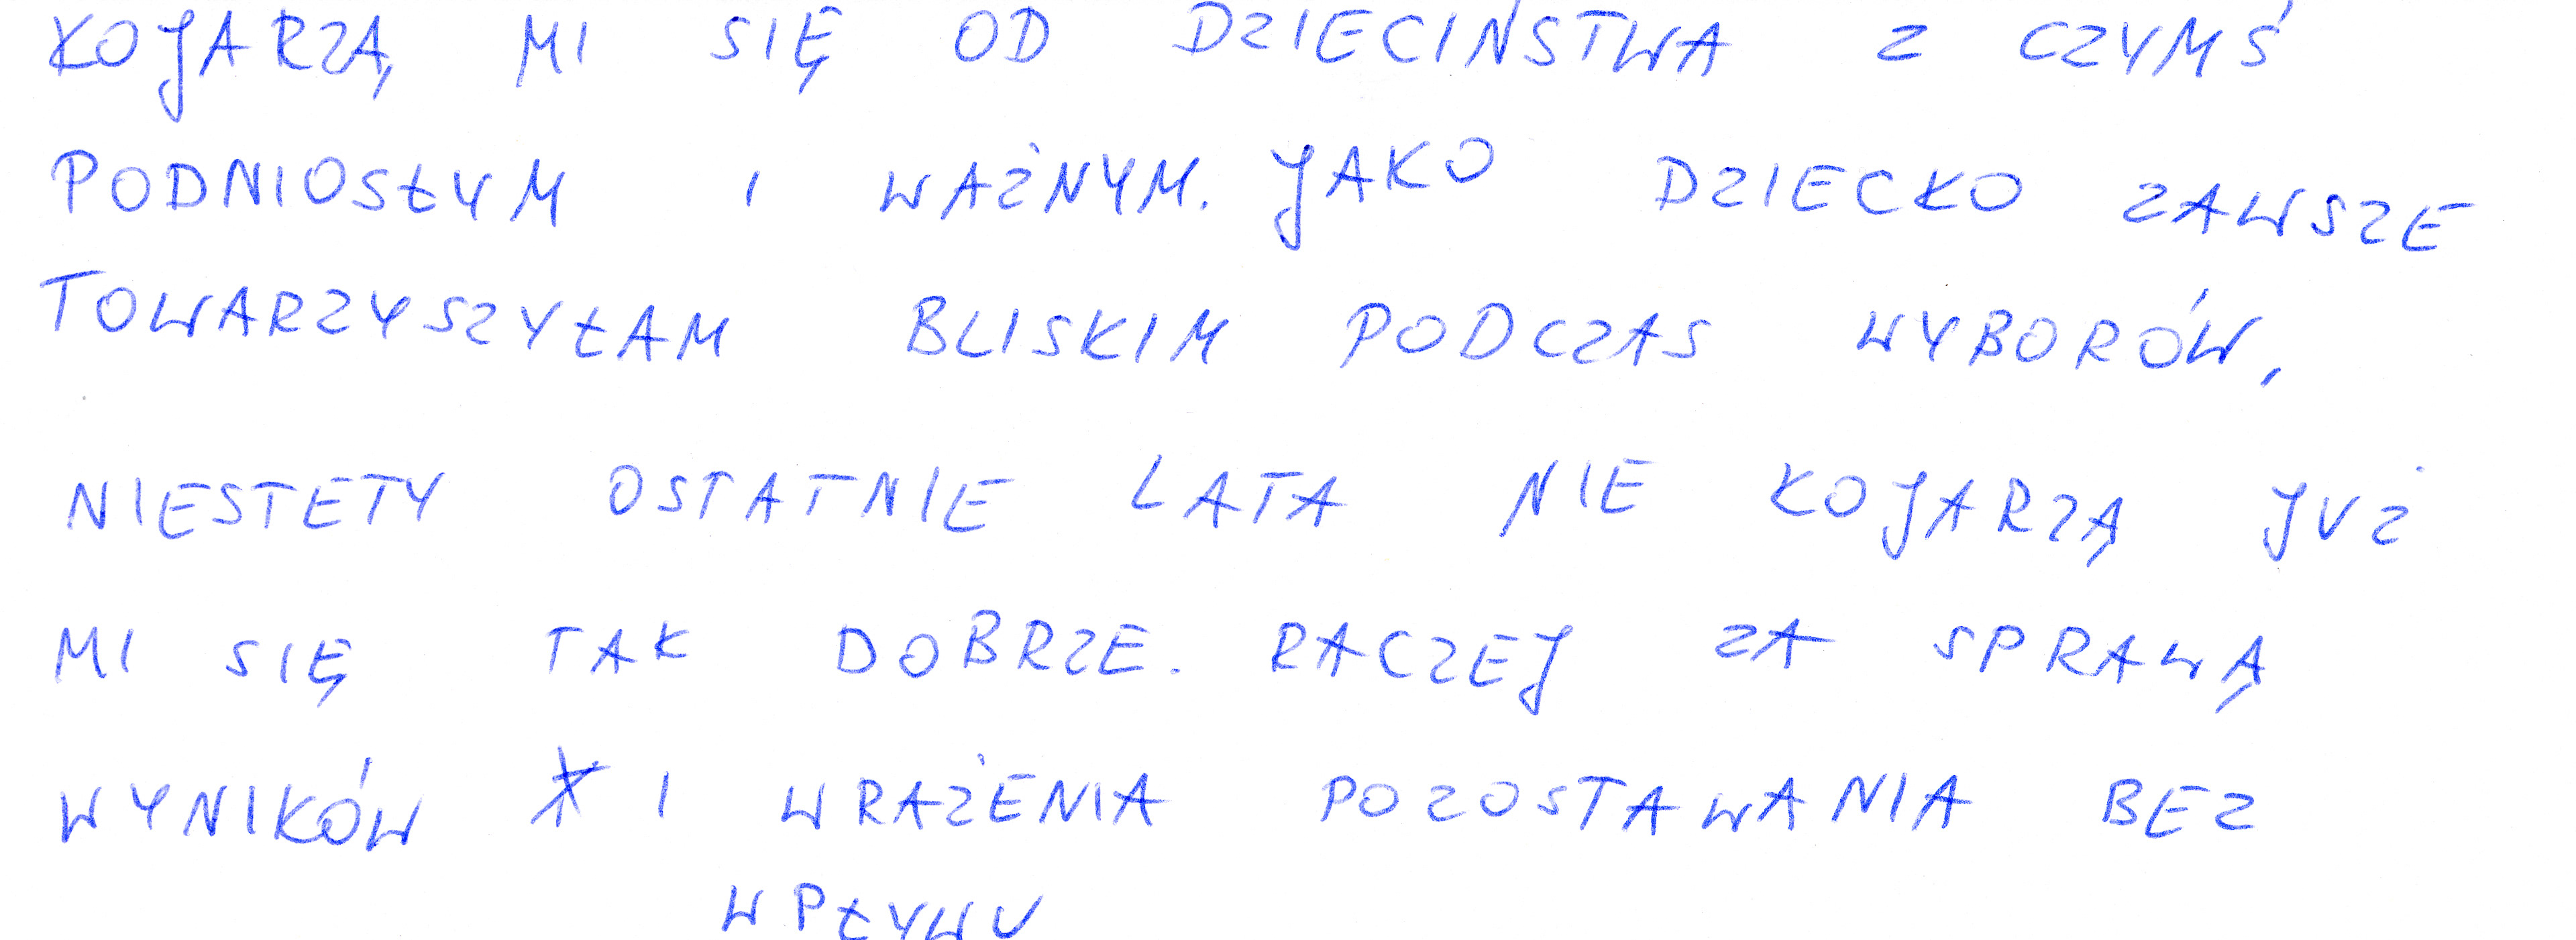 KOJARZĄ MI SIĘ OD DZIECIŃSTWA Z CZYMŚ
PODNIOSŁYM I WAŻNYM. JAKO DZIECKO ZAWSZE
TOWARZYSZYŁAM BLISKIM PODCZAS WYBORÓW,
NIESTETY OSTATNIE LATA NIE KOJARZĄ JUŻ
MI SIĘ TAK DOBRZE. RACZEJ ZA SPRAWĄ
WYNIKÓW I WRAŻENIA POZOSTAWANIA BEZ
WPŁYWU